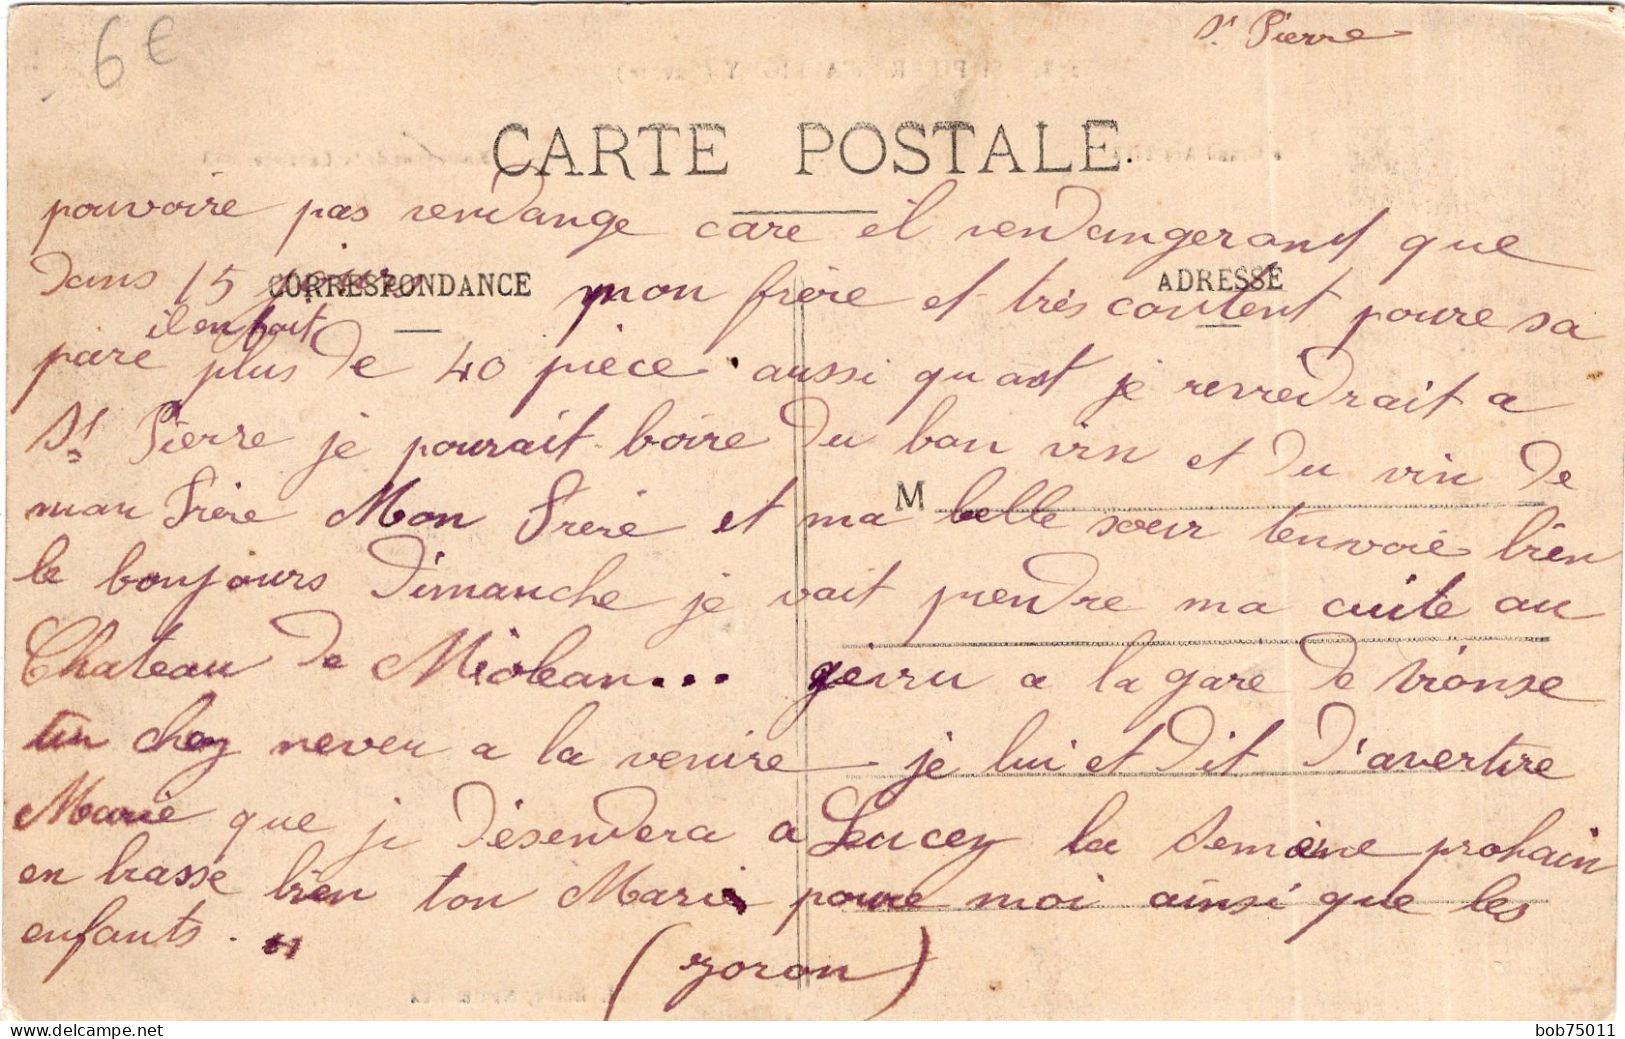 6€
St Pierre
CARTE POSTALE.
pouvoire pas vendange care il vendangerant que
dans 15 jour mon frère et très contant poure sa
CORRESPONDANCE
ADRESSE
il en fait
pare plus de 40 pièce aussi quant je reviedrait a
St Pierre je pourait boire du bon vin et du vin de
mon frère Mon frère et ma belle soeur tenvoie bien
M
le bonjours Dimanche je vait prendre ma cuite au
Chateau de Miolean... geiru a la gare de
un chez never a la venire je lui et dit d'avertire
Marie que je désendera a Lucey la Semène prohain
en brasse bien ton Marie poure moi ainsi que les
enfants. "
(Zoron)
bob75011